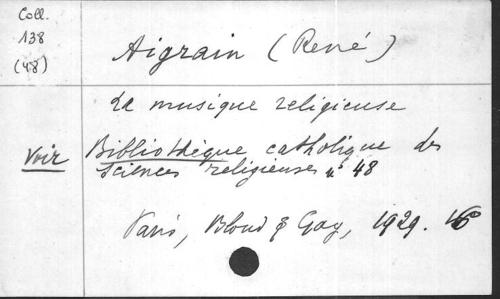 Coll.
138
(48)
Aigrain (René)
La musique religieuse
Voir Bibliothèque catholique des
sciences religieuses n° 48
Paris, Bloud & Gay, 1929. 16°